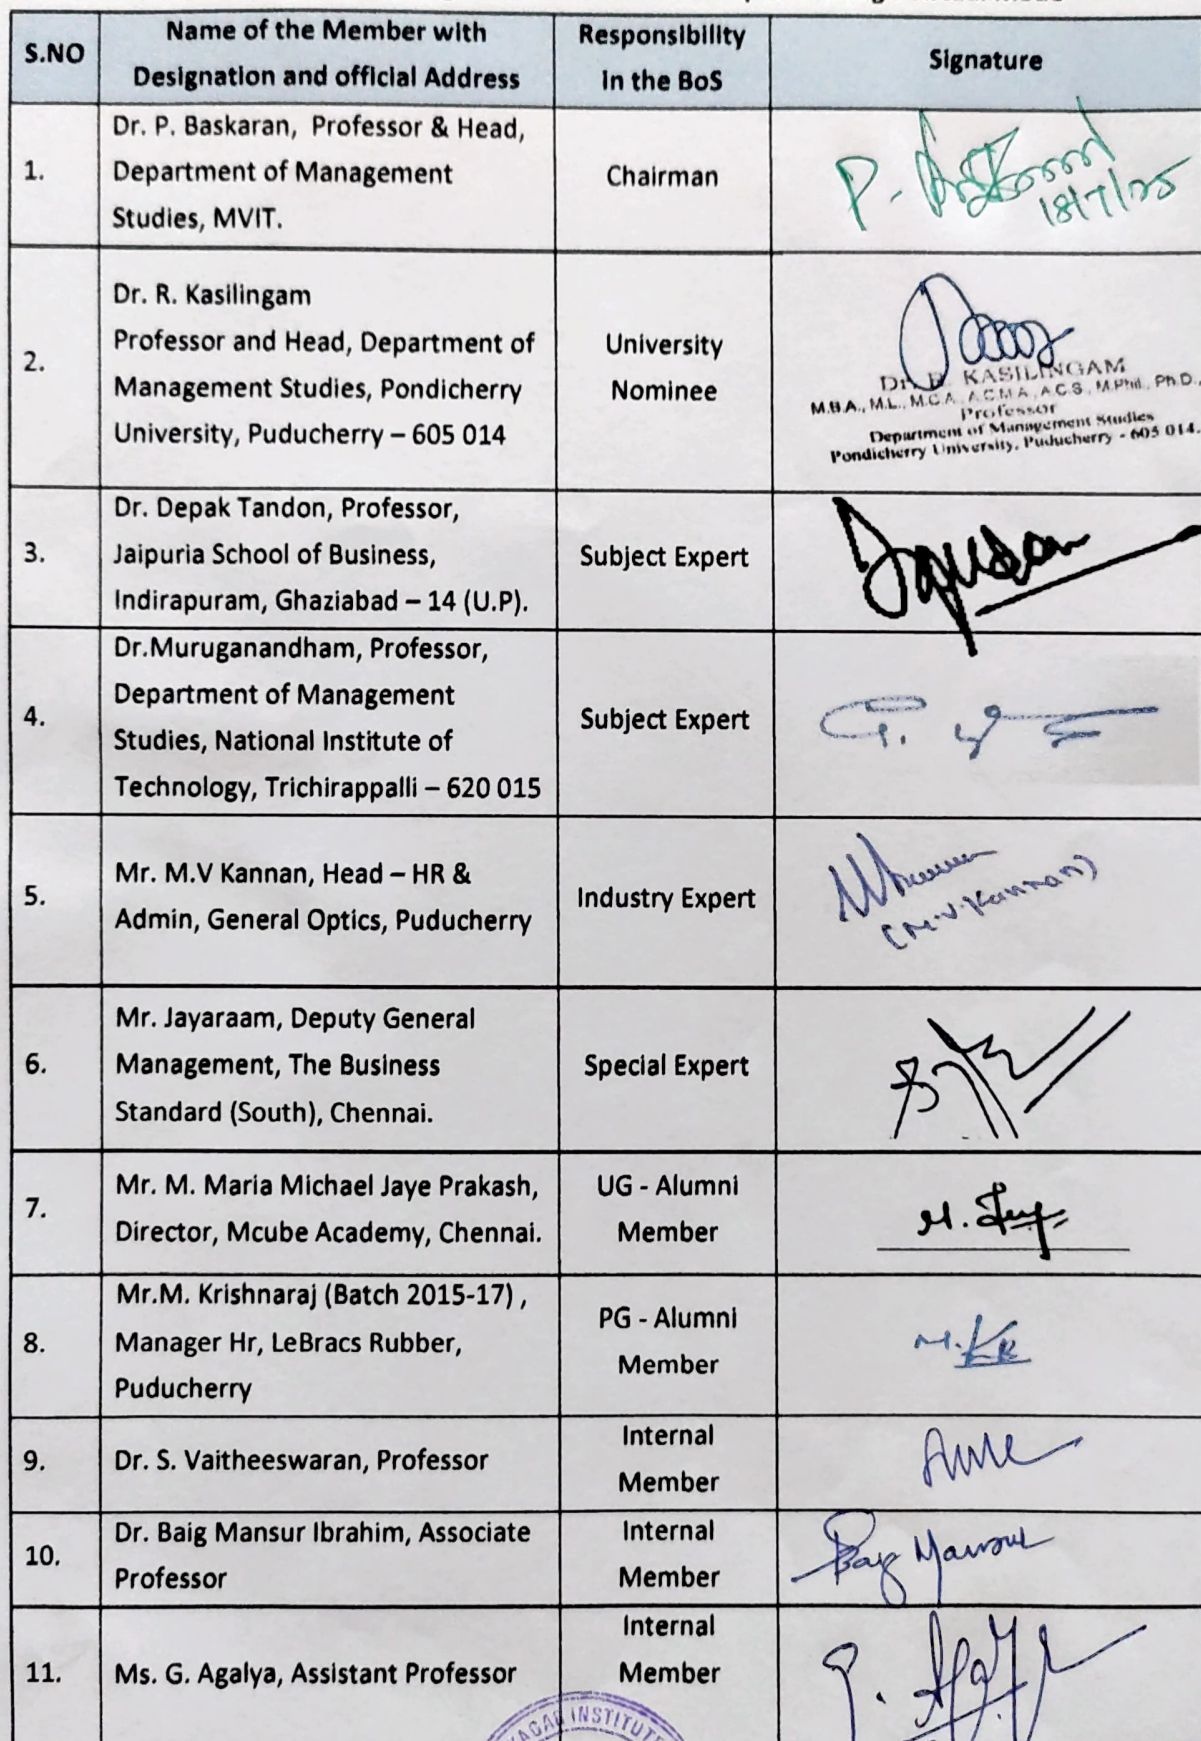 S.NO
Name of the Member with
Designation and official Address
Responsibility
in the BoS
Signature
1.
Dr. P. Baskaran, Professor & Head,
Department of Management
Studies, MVIT.
Chairman
P. Baskaran
18/7/25
2.
Dr. R. Kasilingam
Professor and Head, Department of
Management Studies, Pondicherry
University, Puducherry – 605 014
University
Nominee
Dr. R. KASILINGAM
M.B.A., M.L., M.C.A., A.C.M.A., A.C.S., M.Phil., Ph.D.,
Professor
Department of Management Studies
Pondicherry University, Puducherry - 605 014.
3.
Dr. Depak Tandon, Professor,
Jaipuria School of Business,
Indirapuram, Ghaziabad – 14 (U.P).
Subject Expert
4.
Dr.Muruganandham, Professor,
Department of Management
Studies, National Institute of
Technology, Trichirappalli – 620 015
Subject Expert
5.
Mr. M.V Kannan, Head – HR &
Admin, General Optics, Puducherry
Industry Expert
(M.V.Kannan)
6.
Mr. Jayaraam, Deputy General
Management, The Business
Standard (South), Chennai.
Special Expert
7.
Mr. M. Maria Michael Jaye Prakash,
Director, Mcube Academy, Chennai.
UG - Alumni
Member
8.
Mr.M. Krishnaraj (Batch 2015-17) ,
Manager Hr, LeBracs Rubber,
Puducherry
PG - Alumni
Member
9.
Dr. S. Vaitheeswaran, Professor
Internal
Member
10.
Dr. Baig Mansur Ibrahim, Associate
Professor
Internal
Member
Baig Mansur
11.
Ms. G. Agalya, Assistant Professor
Internal
Member
INSTITUTE